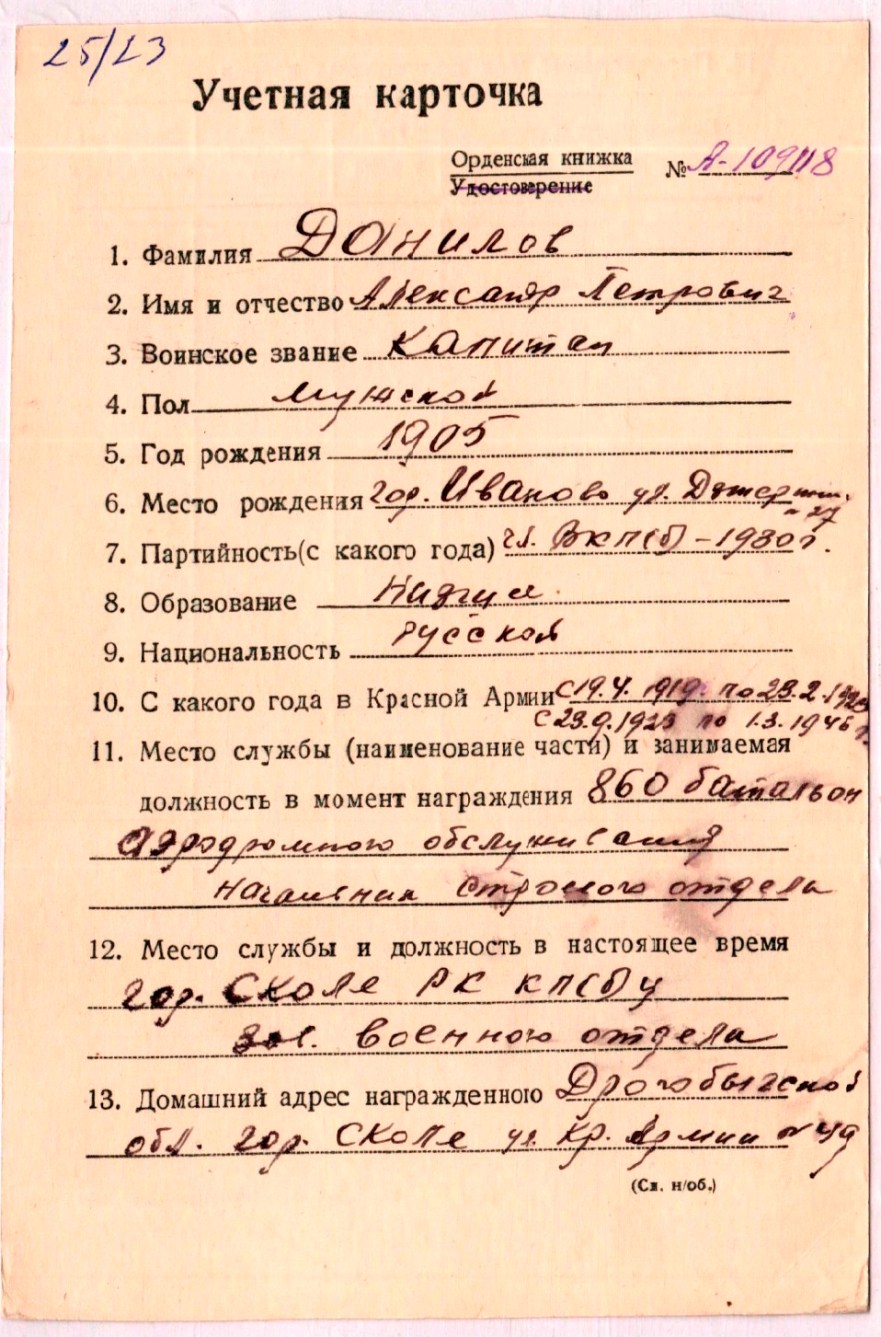 25/23
Учетная карточка
Орденская книжка
Удостоверение
№ А-109118
1. Фамилия Данилов
2. Имя и отчество Александр Петрович
3. Воинское звание Капитан
4. Пол Мужской
5. Год рождения 1905
6. Место рождения гор. Иваново ул.
7. Партийность (с какого года) чл. ВКП(б) - 1930 г.
8. Образование Низшее
9. Национальность Русской
10. С какого года в Красной Армии с 19.4.1919. по 23.2.
с 23.9.1923 по 1.3.1946 г.
11. Место службы (наименование части) и занимаемая
должность в момент награждения 860 батальон
аэродромного обслуживания
Начальник строевого отдела
12. Место службы и должность в настоящее время
гор. Сколе РК КП(б)У
зав. военного отдела
13. Домашний адрес награжденного Дрогобычской
обл. гор. Сколе ул. Кр. Армии № 49
(См. н/об.)